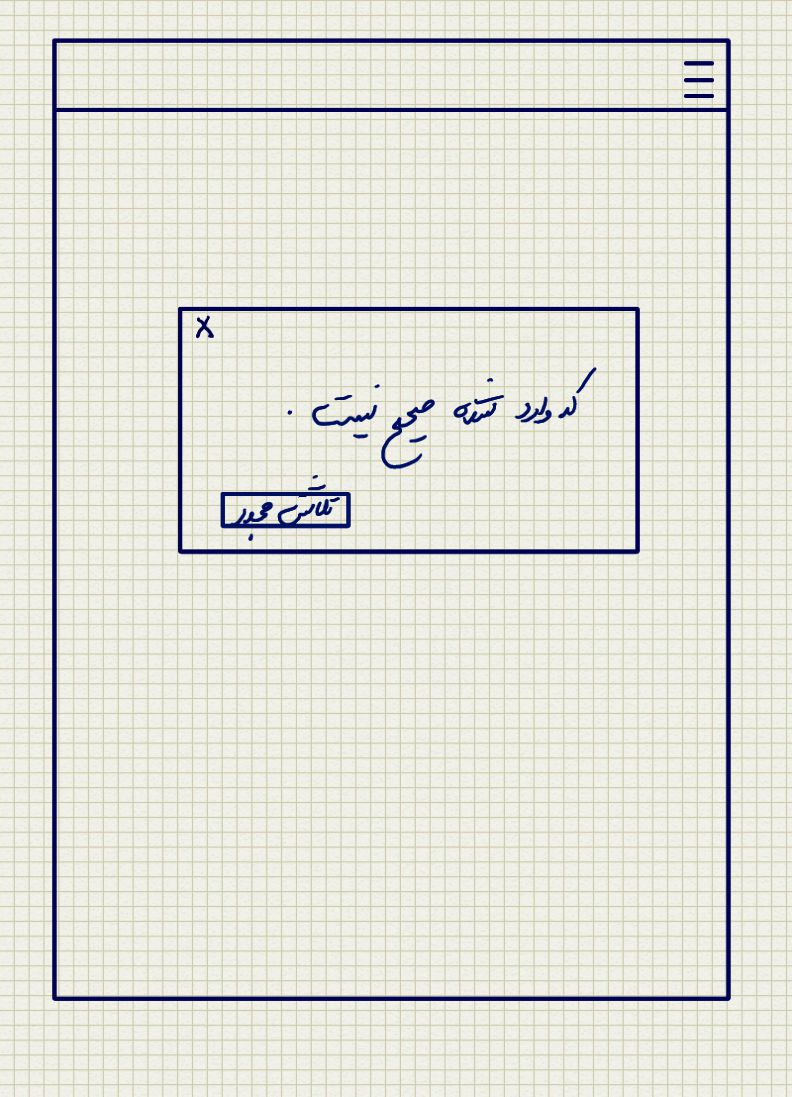 X
کد وارد شده صحیح نیست .
تلاش مجدد